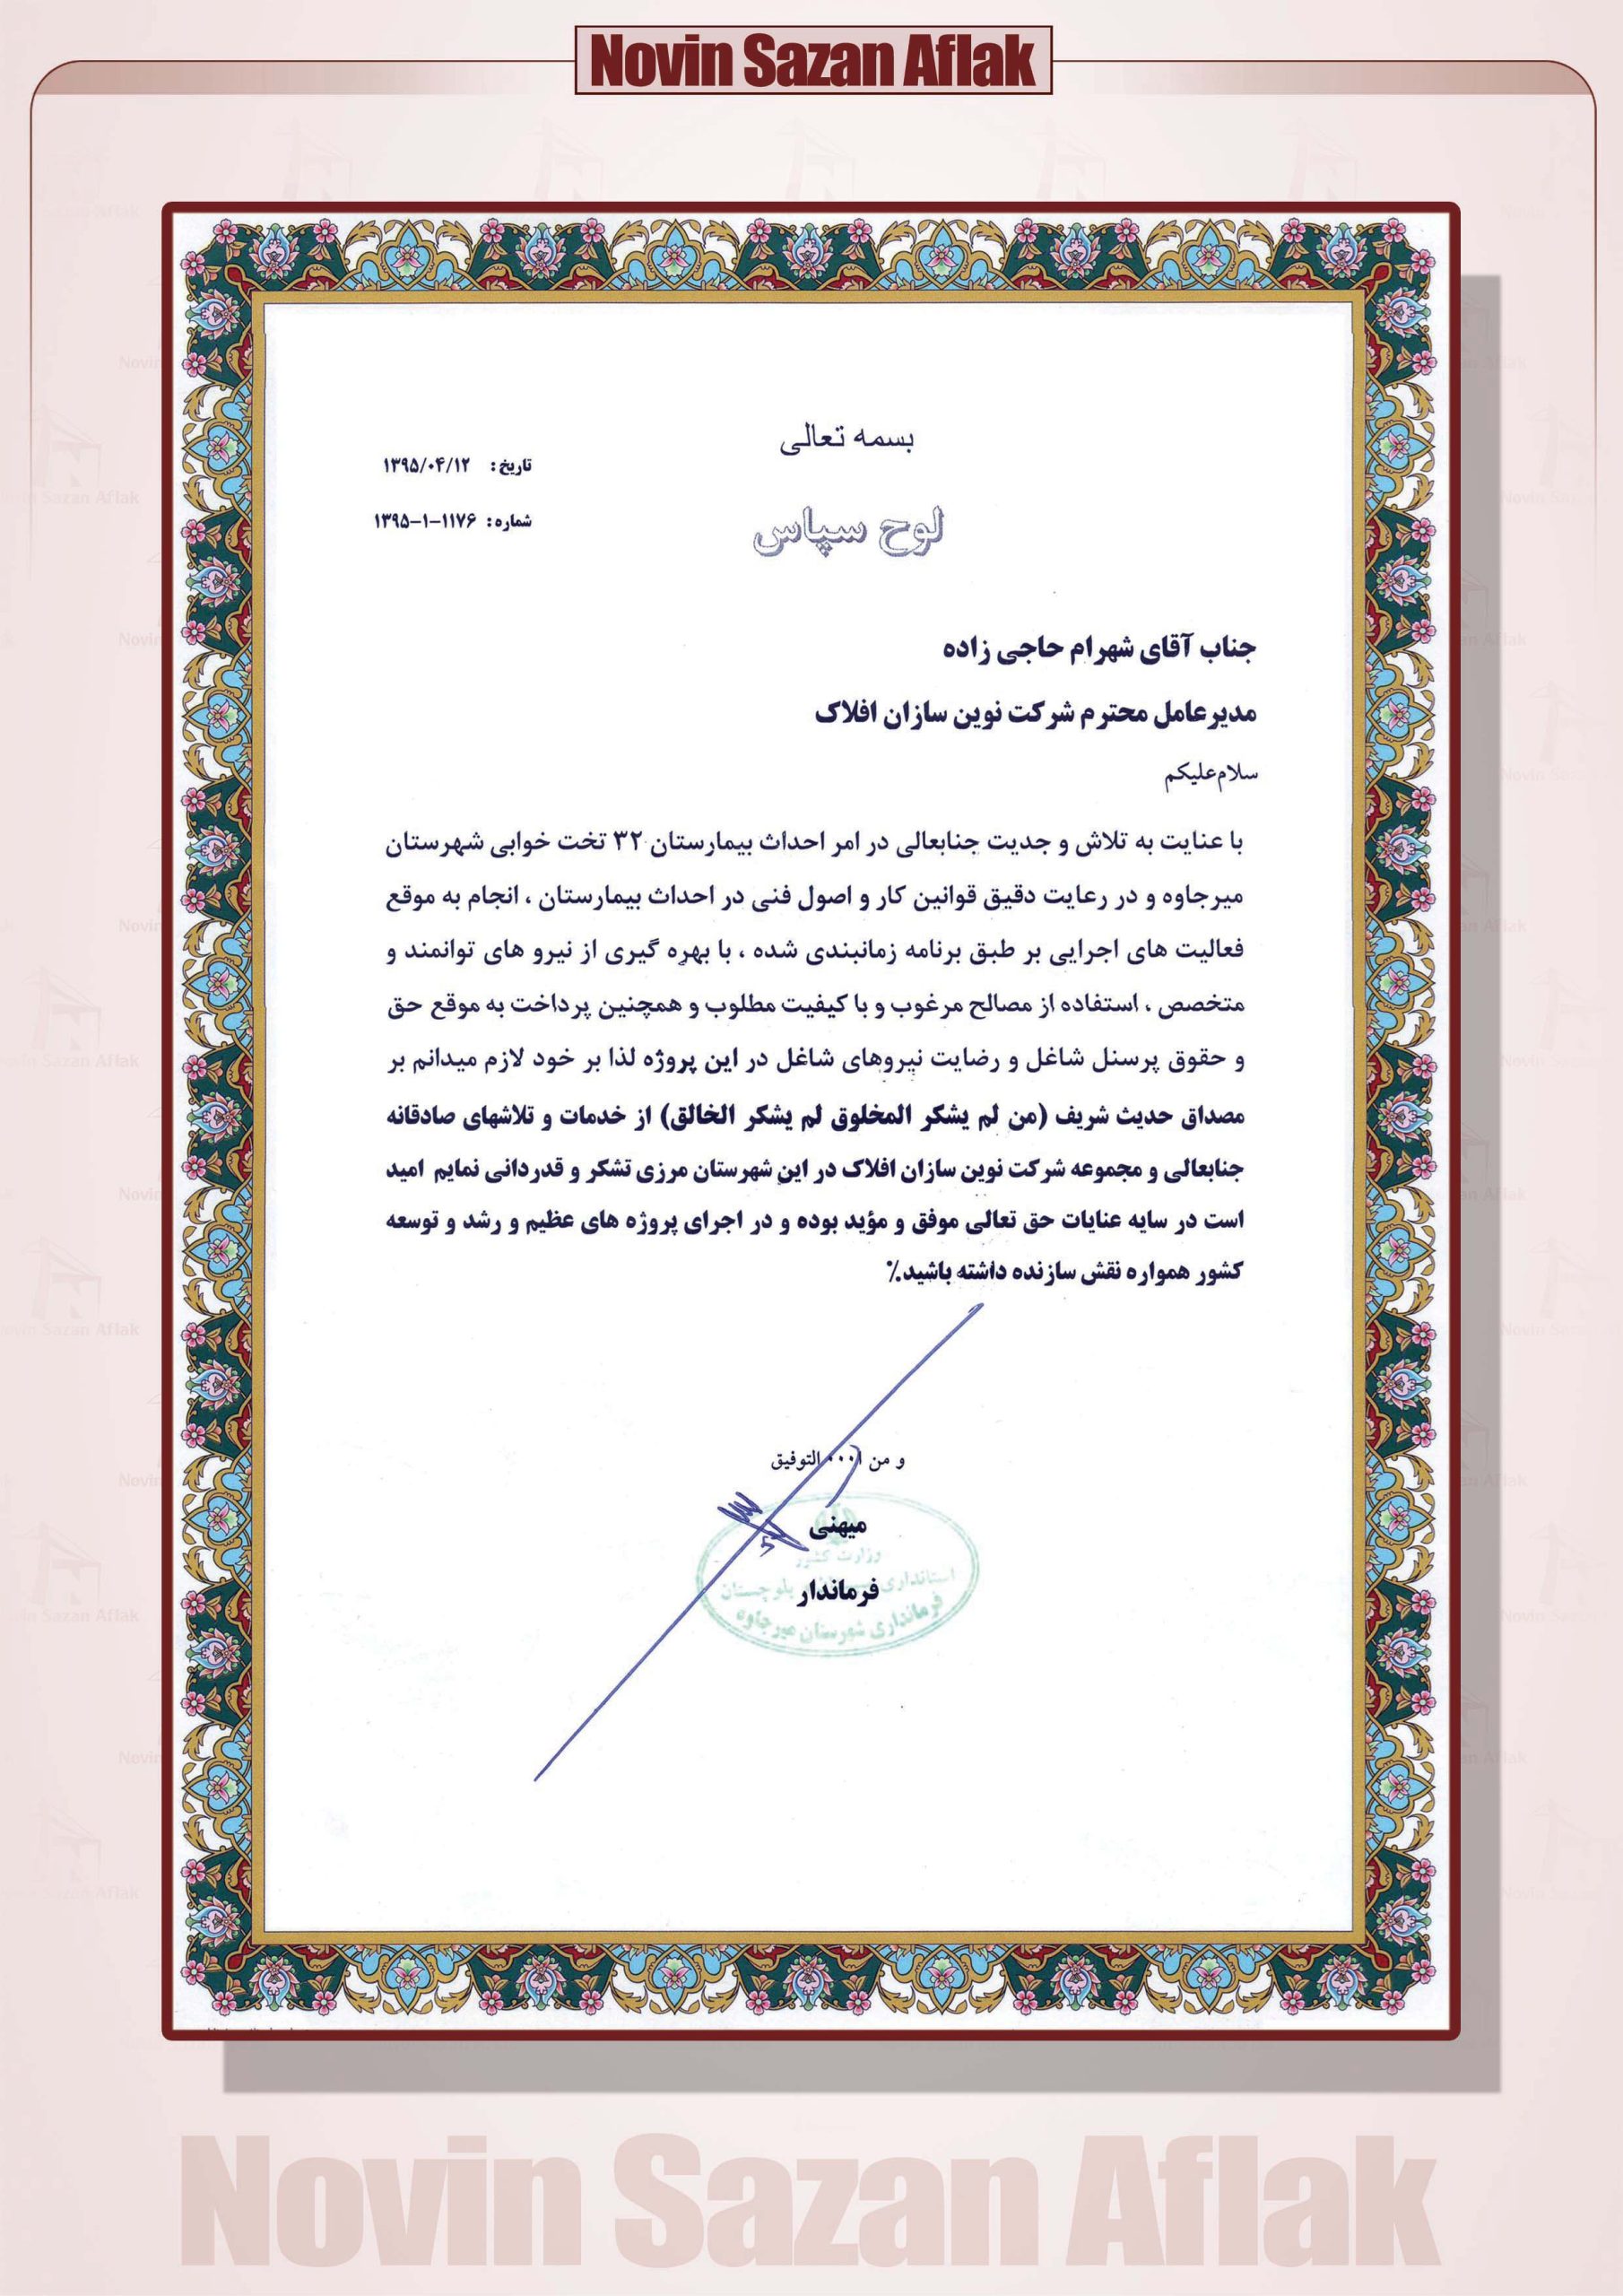 Novin Sazan Aflak
بسمه تعالی
تاریخ: ۱۳۹۵/۰۴/۱۲
شماره: ۱۱۷۶-۱-۱۳۹۵
لوح سپاس
جناب آقای شهرام حاجی زاده
مدیرعامل محترم شرکت نوین سازان افلاک
سلام‌علیکم
با عنایت به تلاش و جدیت جنابعالی در امر احداث بیمارستان ۳۲ تخت خوابی شهرستان
میرجاوه و در رعایت دقیق قوانین کار و اصول فنی در احداث بیمارستان ، انجام به موقع
فعالیت های اجرایی بر طبق برنامه زمانبندی شده ، با بهره گیری از نیرو های توانمند و
متخصص ، استفاده از مصالح مرغوب و با کیفیت مطلوب و همچنین پرداخت به موقع حق
و حقوق پرسنل شاغل و رضایت نیروهای شاغل در این پروژه لذا بر خود لازم میدانم بر
مصداق حدیث شریف (من لم یشکر المخلوق لم یشکر الخالق) از خدمات و تلاشهای صادقانه
جنابعالی و مجموعه شرکت نوین سازان افلاک در این شهرستان مرزی تشکر و قدردانی نمایم امید
است در سایه عنایات حق تعالی موفق و مؤید بوده و در اجرای پروژه های عظیم و رشد و توسعه
کشور همواره نقش سازنده داشته باشید.٪
و من ا... التوفیق
میهنی
وزارت کشور
استانداری بلوچستان
فرماندار
فرمانداری شهرستان میرجاوه
Novin Sazan Aflak